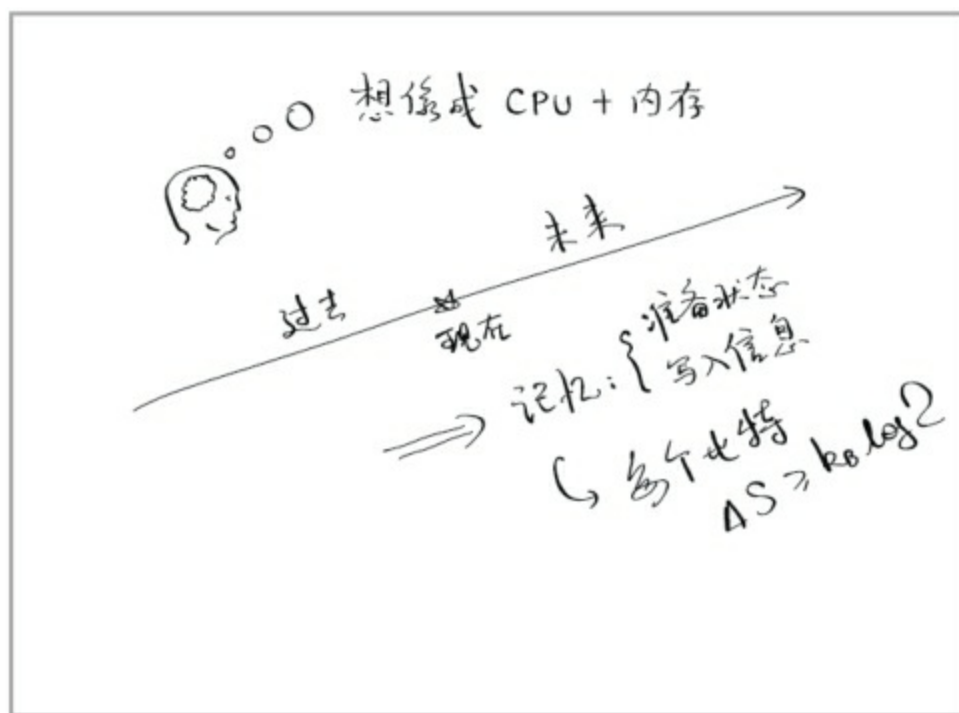 想像成 CPU + 内存
未来
过去
现在
记忆:{准备状态
写入信息
每个比特
ΔS ≥ k_B log2